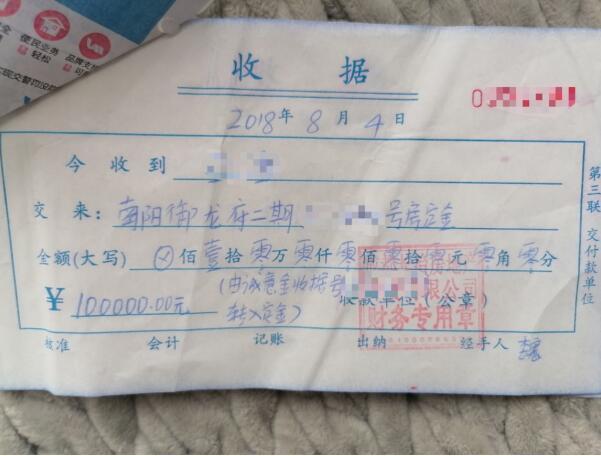 便民业务 品牌支
轻松 可
交警罚没
收据
2018年8月4日
今收到
交来：南阳御龙府二期 号房定金
金额(大写) ⊗佰壹拾零万零仟零佰零拾零元零角零分
¥ 100000.00元
(由诚意金收据号
转入定金)
收款单位(公章)
限公司
财务专用章
核准 会计 记账 出纳 经手人
第三联 交付款单位